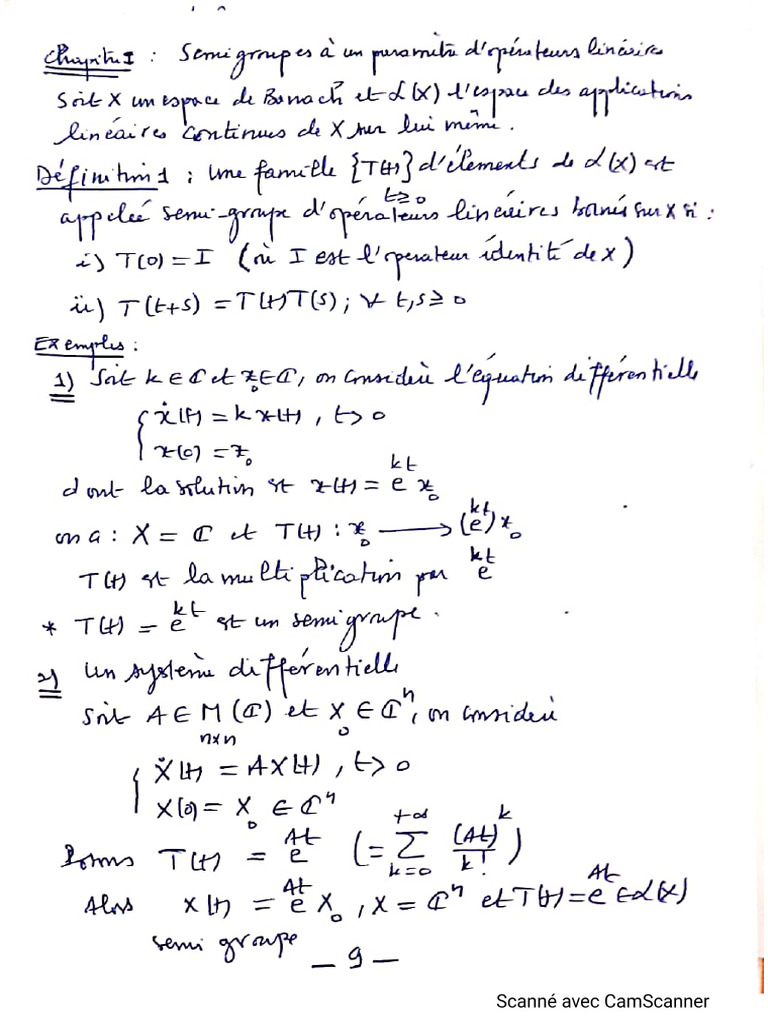 Chapitre I : Semi groupes à un paramètre d'opérateurs linéaires
Soit X un espace de Banach et L(X) l'espace des applications
linéaires continues de X sur lui même.
Définition 1 : Une famille {T(t)}_{t≥0} d'éléments de L(X) est
appelée semi-groupe d'opérateurs linéaires bornés sur X si :
i) T(0) = I (où I est l'operateur identité de X)
ii) T(t+s) = T(t)T(s) ; ∀ t,s ≥ 0
Exemples :
1) Soit k ∈ ℂ et x₀ ∈ ℂ, on considère l'équation différentielle
{ ẋ(t) = k x(t), t > 0
x(0) = x₀
dont la solution est x(t) = e^{kt} x₀
on a : X = ℂ et T(t) : x₀ ⟶ (e^{kt}) x₀
T(t) est la multiplication par e^{kt}
* T(t) = e^{kt} est un semi groupe.
2) Un système différentielle
Soit A ∈ M_{n×n}(ℂ) et X₀ ∈ ℂⁿ, on considère
{ Ẋ(t) = AX(t), t > 0
X(0) = X₀ ∈ ℂⁿ
Posons T(t) = e^{At} (= ∑_{k=0}^{+∞} (At)^k / k! )
Alors X(t) = e^{At} X₀, X = ℂⁿ et T(t) = e^{At} ∈ L(X)
semi groupe
— 9 —
Scanné avec CamScanner